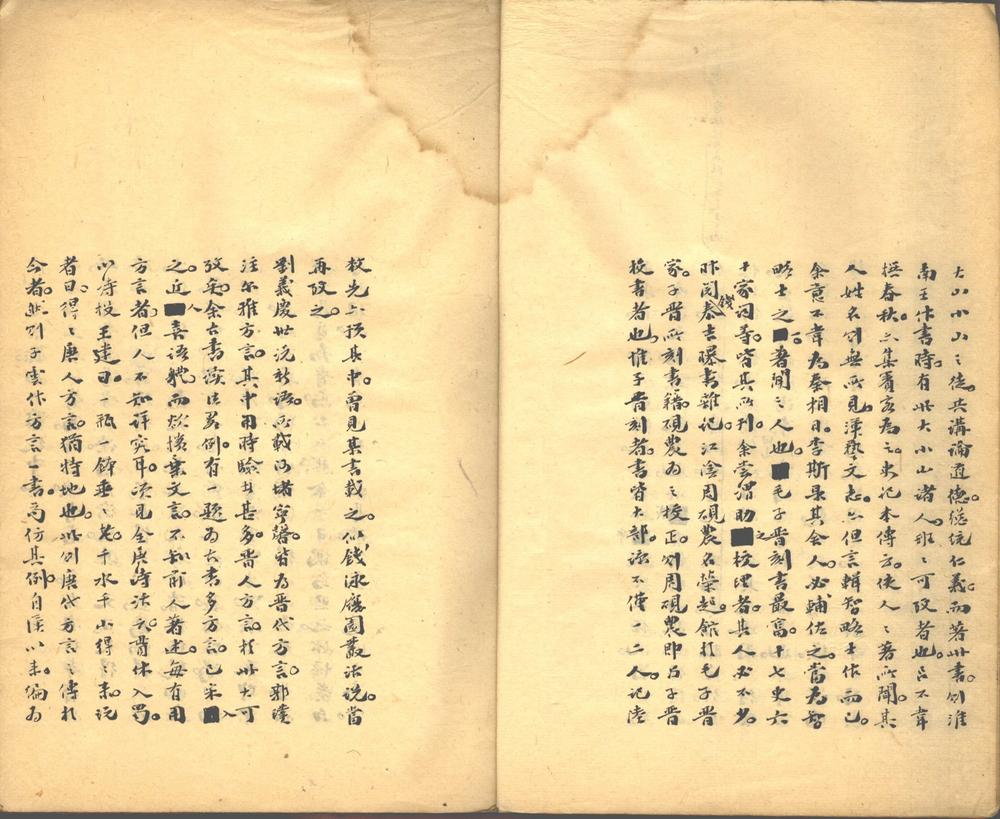 大山小山之徒。共講論道德。總統仁義。而著此書。則淮
南王作書時。有此大小山諸人。班班可考者也。呂不韋
撰春秋。亦集賓客為之。史記本傳。方使人人著所聞。其
人姓名則無所見。漢藝文志。亦但言輯智略士作而已。
余意不韋為秦相日。李斯最其舍人。必輔佐之。當為智
略士之■著聞之人也。■毛子晉刻書最富。十七史六
十家詞等。皆其所刊。余嘗謂助■校理者。其人必不少。
昨閱錢泰吉曝書雜記。江陰周硯農名榮起。館於毛子晉
家。子晉所刻書籍。硯農為之校正。則周硯農即為子晉
校書者也。惟子晉刻者。書皆大部。該不僅一二人。記陸
敕先亦預其中。曾見某書載之。似錢泳履園叢話說。當
再考之。
劉義慶世說新語。所載阿堵寧馨。皆為晉代方言。郭璞
注爾雅方言。其中用時驗者甚多。晉人方言。於此大可
考矣。余古書讀法略例。有一題為古書多方言。已采■入
之。近人■喜語體。而欲擯棄文言。不知前人著述。每有用
方言者。但人不知詳究耳。須見全唐詩話。天貫休入蜀。
以詩投王建曰。一瓶一鉢垂垂老。千水千山得得來。說
者曰。得得唐人方言。猶特地也。此則唐代方言之傳於
今者。然則子雲作方言一書。苟仿其例。自漢以來。徧為